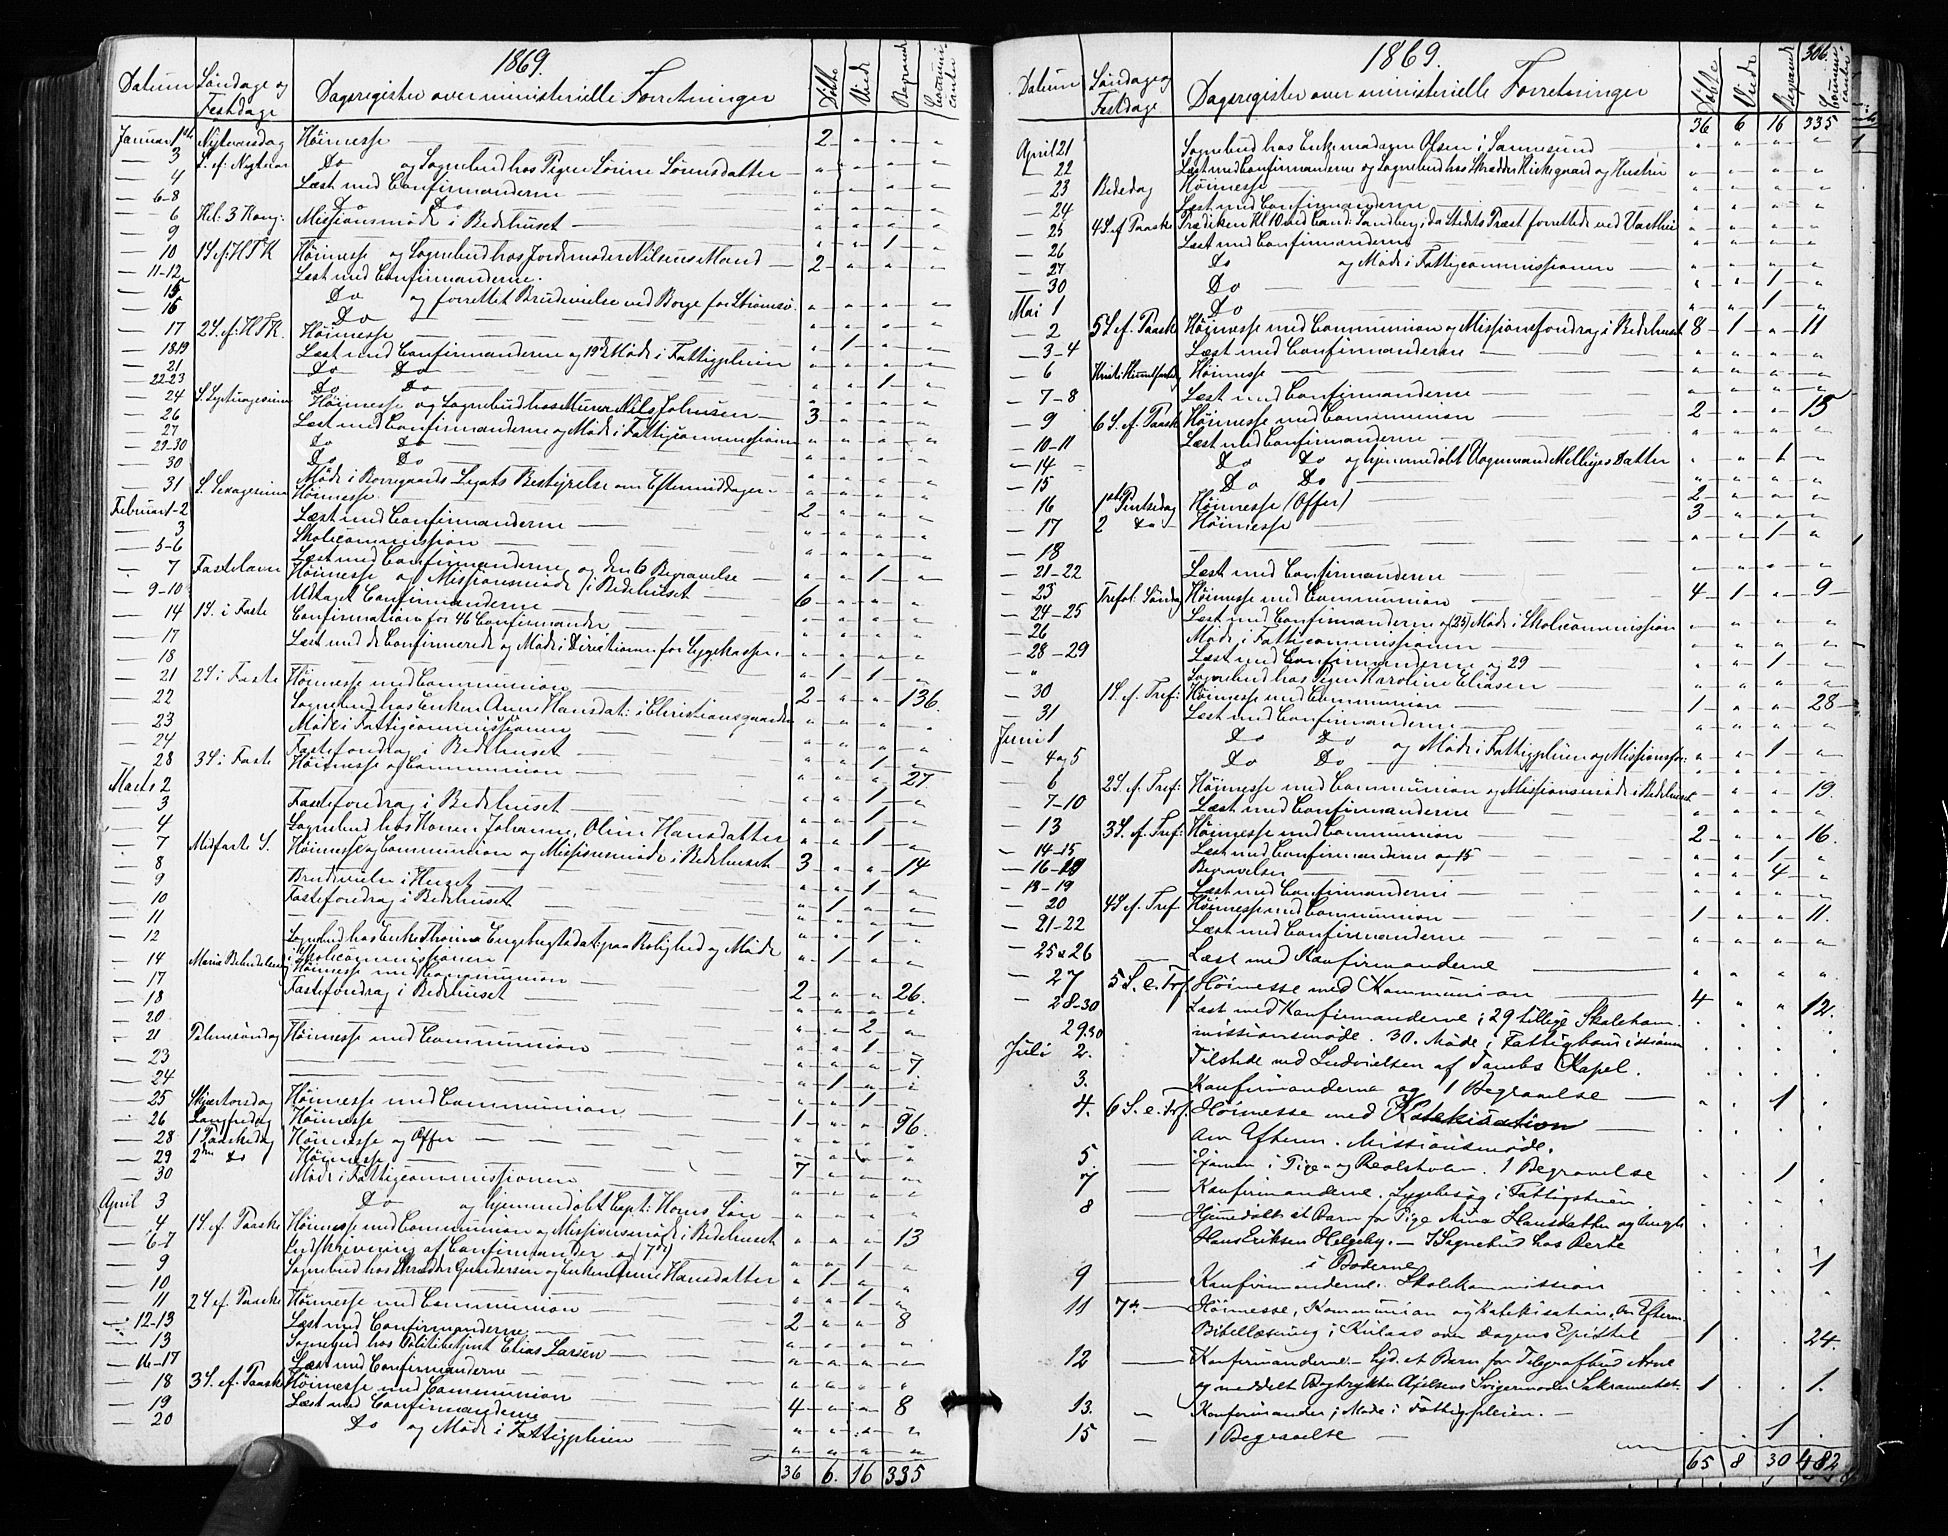 1869.
Datum Søndage og Festdage Dagsregister over ministerielle Forretninger Døbte Viede Begravede Communicanter
Januar 1ste Nytaarsdag Høimesse 2 " " "
3 S. ef. Nytaar Do og Sognebud hos Pigen Sørine Sørensdatter " " " "
4 Læst med Confirmanderne " " " "
6-8 Do Do
6 Hel: 3 Kong: Missionsmøde i Bedehuset
9
10 1 S. ef: H T K Høimesse og Sognebud hos Jordemoder Nilsens Mand 2 " " "
11-12 Læst med Confirmanderne.
15 Do og forrettet Brudevielse ved Borge for
16 Do
17 2 S. ef. H T K. Høimesse
18 19 Læst med Confirmanderne og 19de Møde i Fattigpleien
21 Do Do
22-23 Do Do
24 S. Septuagesima Høimesse og Sognebud hos Murer Nils Johnsen 3
26 Læst med Confirmanderne og Møde i Fattigcommissionen
27 Do Do
29-30 Do Do
30 Møde i Borregaards Legats Bestyrelse om Eftermiddagen
31 S. Sexagesima Høimesse 2
Februar 1-2 Læst med Confirmanderne
3 Skolecommission
5-6 Læst med Confirmanderne og den 6 Begravelse 1
7 Fastelavn Høimesse og Missionsmøde i Bedehuset 6
9-10 Udtaget Confirmanderne
14 1 S. i Faste Confirmation for 46 Confirmander
17 Læst med de Confirmerede og Møde i Directionen for Sygekassen
18 1 1
21 2 S i Faste Høimesse med Communion 2 " " 136.
22 Sognebud hos Enken Anne Hansdat: i Christiansgaarden
23 Møde i Fattigcommissionen
24 Fastefordrag i Bedehuset
28 3 S i Faste Høimesse og Communion " " " 27.
Marts 2
3 Fastefordrag i Bedehuset
4 Sognebud hos Konen Johanne Oline Hansdatter
7 Midfaste S. Høimesse og Communion og Missionsmøde i Bedehuset 3 " " 14
8 Brudevielse i Huset
9 Fastefordrag i Bedehuset
10
11
12 Sognebud hos Enke Thorina Engebregtsdat: paa Rolighed og Møde
i Skolecommissionen
14 Maria Bebudelsesdag Høimesse med Communion 2 " " 26.
17 Fastefordrag i Bedehuset
18
20
21 Palmesøndag Høimesse med Communion 7
23
24
25 Skjærtorsdag Høimesse med Communion 1 " " 96.
26 Langfredag Høimesse
28 1 Paaskedag Høimesse og Offer
29 2den do Høimesse 7
30 Møde i Fattigcommissionen
April 3 Do og hjemmedøbt Capt: Horns Søn
4 1 S. ef. Paaske Høimesse med Communion og Missionsmøde i Bedehuset " " " 13
6 7 Indskrivning af Confirmander og 7de
9 Sognebud hos Skrædder Gundersen og Enken Anne Hansdatter
10
11 2 S ef. Paaske Høimesse med Communion 2 " " 8
12-13 Læst med Confirmanderne
13 Sognebud hos Politibetjent Elias Larsen
16-17 Læst med Confirmanderne
18 3 S. ef. Paaske Høimesse med Communion 4 " " 8
19 Læst med Confirmanderne
20 Do og Møde i Fattigpleien
36 6. 16 335
306.
1869.
Datum Søndage og Festdage Dagsregister over ministerielle Forretninger Døbte Viede Begravede Communicanter
36 6 16 335
April 21 Sognebud hos Enkemadame Olsen i Sannesund
22 Læst med Confirmanderne og Sognebud hos Skrædder Kirkegaard og Hustru
23 Bededag Høimesse
24 Læst med Confirmanderne
25 4 S. ef Paaske Prædiken Kl 10 ved Cand: Sandberg, da Stedets Præst forrettede ved
26 Læst med Confirmanderne
27 Do og Møde i Fattigcommissionen
30 Do 1
Mai 1 Do 1
2 5 S. ef. Paask Høimesse med Communion og Missionsfordrag i Bedehuset 8 1 " 11
3-4 Læst med Confirmanderne
6 Kristi Himmelfartsdag Høimesse
7-8 Læst med Confirmanderne
9 6 S. ef. Paask Høimesse med Communion 2 " " 15
10-11 Læst med Confirmanderne
14 Do Do og hjemmedøbt Vognmand Melbyes Datter 1
15 Do Do
16 1ste Pintsedag Høimesse (Offer) 2
17 2 do Høimesse 3
18 1
21-22 Læst med Confirmanderne
23 Trefol: Søndag Høimesse med Communion 4 1 " 9
24-25 Læst med Confirmanderne og (25) Møde i Skolecommission
26 Møde i Fattigcommissionen
28-29 Læst med Confirmanderne og 29 1
" Sognebud hos Pigen Karoline Eliasen
30 1 S. ef. Tref: Høimesse med Communion 1 " " 28
31 Læst med Confirmanderne
Juni 1 Do Do og Møde i Fattigpleien og Missionsfor: 1
4 og 5 Do Do
6 2 S. ef. Tref: Høimesse med Communion og Missionsmøde i Bedehuset " " " 19.
7-10 Læst med Confirmanderne
13 3 S. ef. Tref: Høimesse med Communion 2 " " 16.
14-15 Læst med Confirmanderne og 15 1
16- Begravelser 4
18-19 Læst med Confirmanderne
20 4 S. ef. Tref Høimesse med Communion 1 " " 11.
21-22 Læst med Confirmanderne
25 & 26 Læst med Konfirmanderne
27 5 S. e. Trf. Høimesse med Kommunion 4 " " 12.
28-30 Læst med Konfirmanderne; 29 tillige Skolekom-
29.30 missionsmøde. 30. Møde i Fattigkommissionen
Juli 2. Tilstede ved Indvielsen af Tombs Kapel.
3. Konfirmanderne og 1 Begravelse 1
4. 6 S. e. Trf. Høimesse med Katekisation
Om Efterm. Missionsmøde.
5. Examen i Pige- og Realskolen. 1 Begravelse 1
7 Konfirmanderne. Sygebesøg i Fattigstuen
8 Hjemedøbt et Barn for Pige Anna Hansdatter og Ungk.
Hans Eriksen Helgeby. - I Sognebud hos Berte
i Boderne 1
9 Konfirmanderne. Skolekommission
11 7de Høimesse, Kommunion og Katekisation. Om Efterm.
Bibellæsning i Kulaas over Dagens Epistel 1 . . 24.
12 Konfirmanderne. - Hjd. et Barn for Telegrafbud Arne
og meddelt Bogtrykker Axelsens Svigermoder Sakramentet. 1 . . 1.
13. Konfirmander; Møde i Fattigpleien.
15 1 Begravelse 1
65 8 30 482